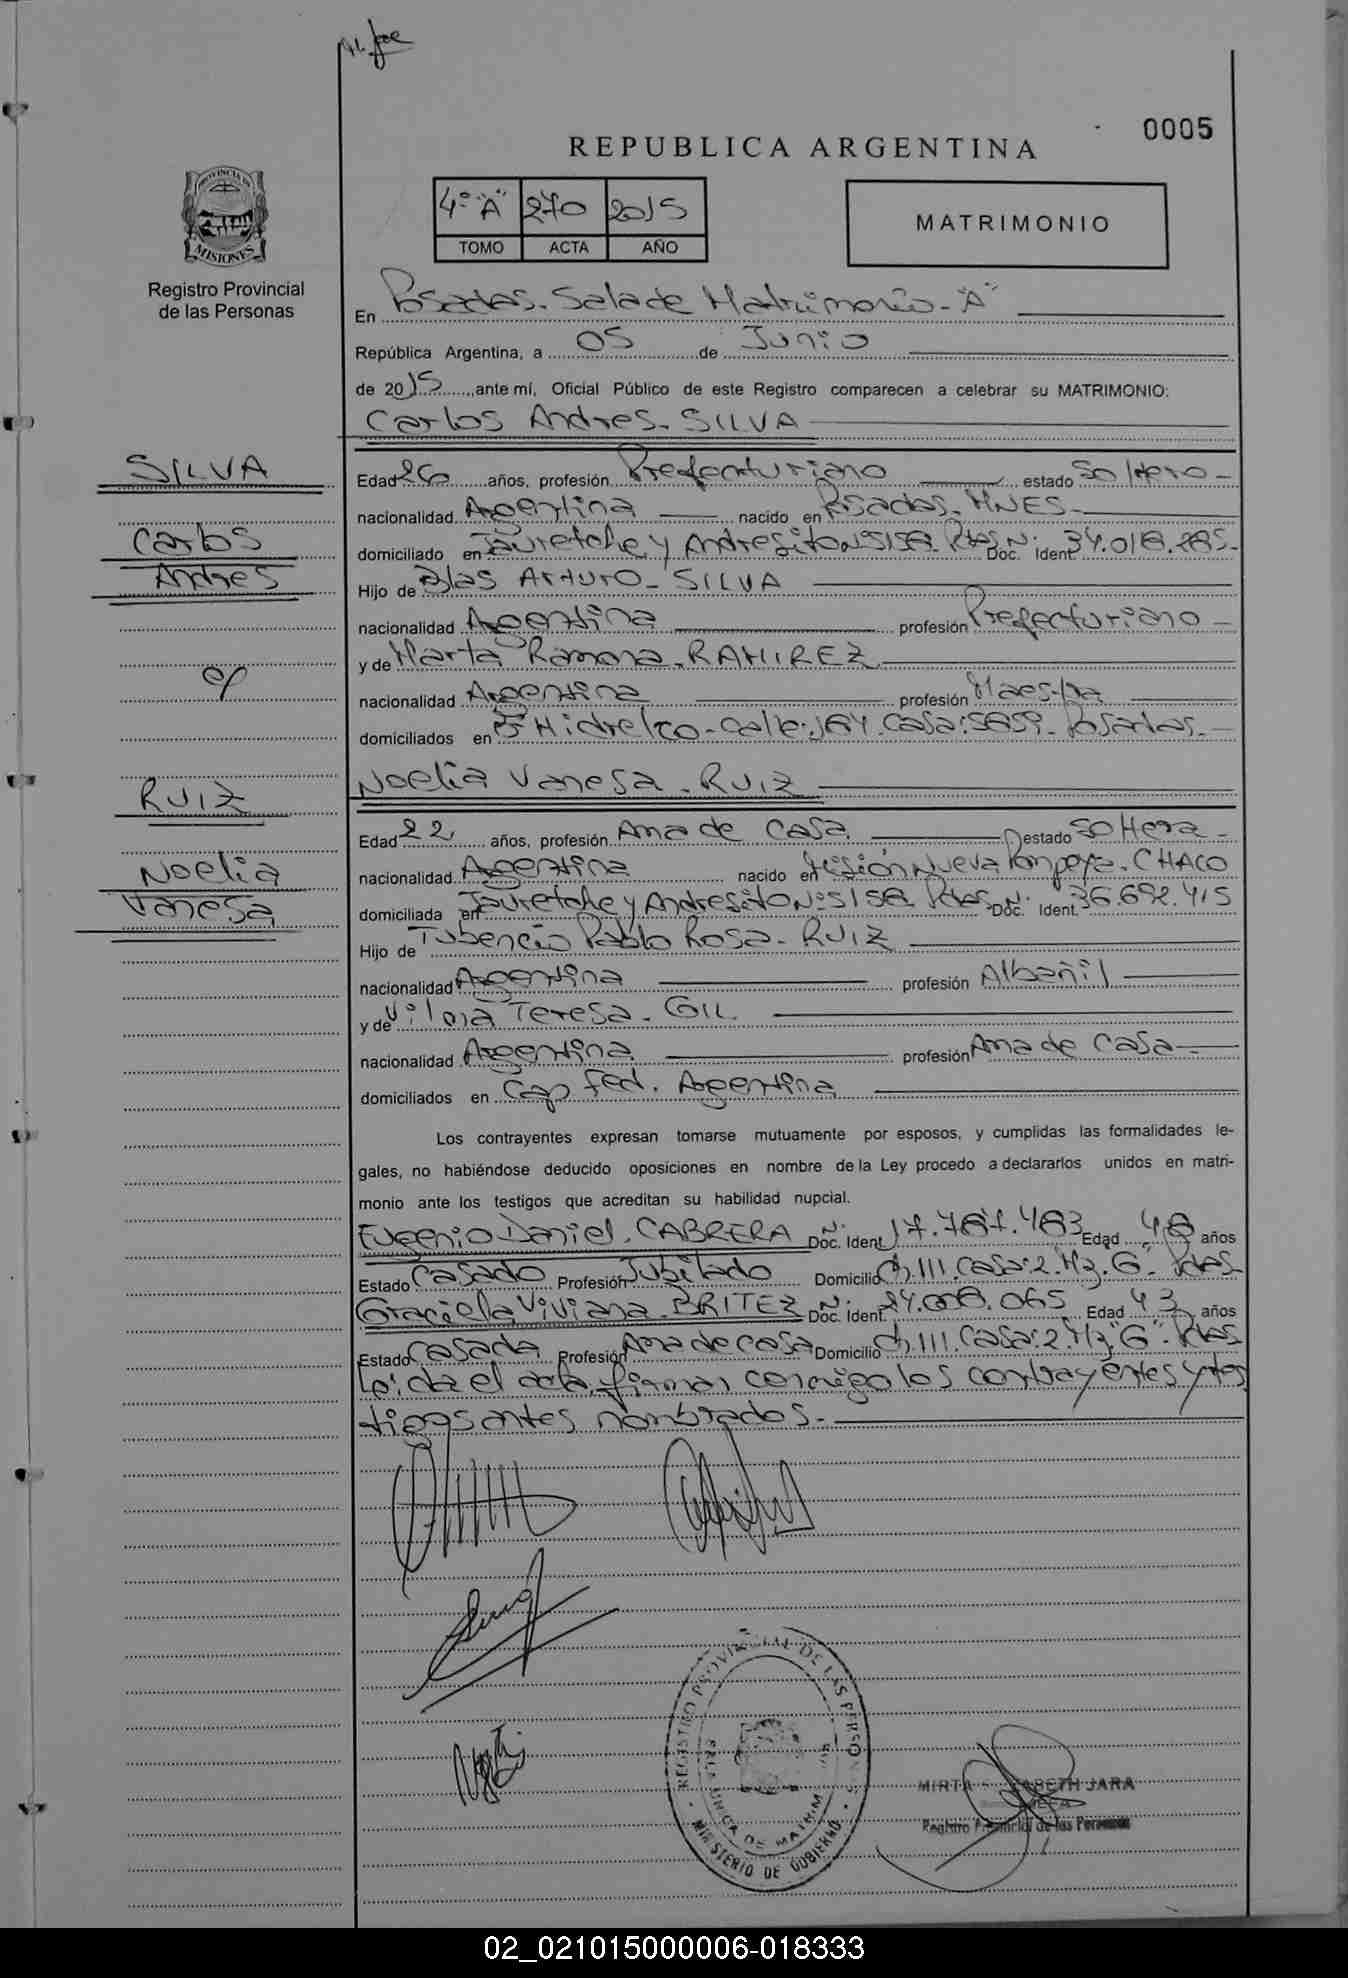 0005
REPUBLICA ARGENTINA
PROVINCIA DE
MISIONES
4º "A" 270 2015
TOMO ACTA AÑO
MATRIMONIO
Registro Provincial
de las Personas
En Posadas. Sala de Matrimonio-"A"
República Argentina, a 05 de Junio
de 2015, ante mí, Oficial Público de este Registro comparecen a celebrar su MATRIMONIO:
Carlos Andres. SILVA
SILVA
Carlos
Andres
Edad 26 años, profesión Prefecturiano estado Soltero-
nacionalidad Argentina nacido en Posadas. MNES.
domiciliado en Jauretche y Andresito Nº5158. Pdas Doc. Ident. Nº 34.018.285-
Hijo de Blas Arturo- SILVA
nacionalidad Argentina profesión Prefecturiano-
y de Marta Ramona. RAMIREZ
nacionalidad Argentina profesión Maestra
domiciliados en Bº Hidrelco-calle:184. casa:5859. Posadas.
RUIZ
Noelia
Vanesa
Noelia Vanesa. RUIZ
Edad 22 años, profesión Ama de casa estado Soltera-
nacionalidad Argentina nacido en Misión Nueva Pompeya. CHACO
domiciliada en Jauretche y Andresito Nº5158 Pdas Doc. Ident. Nº 36.692.415
Hijo de Tubencio Pablo Rosa- RUIZ
nacionalidad Argentina profesión Albañil
y de Vilma Teresa. GIL
nacionalidad Argentina profesión Ama de casa-
domiciliados en Cap Fed. Argentina
Los contrayentes expresan tomarse mutuamente por esposos, y cumplidas las formalidades le-
gales, no habiéndose deducido oposiciones en nombre de la Ley procedo a declararlos unidos en matri-
monio ante los testigos que acreditan su habilidad nupcial.
Eugenio Daniel. CABRERA Doc. Ident. Nº 17.787.483 Edad 48 años
Estado Casado Profesión Jubilado Domicilio Ch.111. casa:2. Mz. G. Pdas-
Graciela Viviana. BRITEZ Doc. Ident. Nº 24.008.065 Edad 43 años
Estado Casada Profesión Ama de casa Domicilio Ch.111. casa:2. Mz "G". Pdas
Leída el acta, firman conmigo los contrayentes y tes
tigos antes nombrados.-
REGISTRO PROVINCIAL DE LAS PERSONAS
UNICA DE MATRIM
MINISTERIO DE GOBIERNO
MIRTA JARA
Registro Provincial de las Personas
02_021015000006-018333